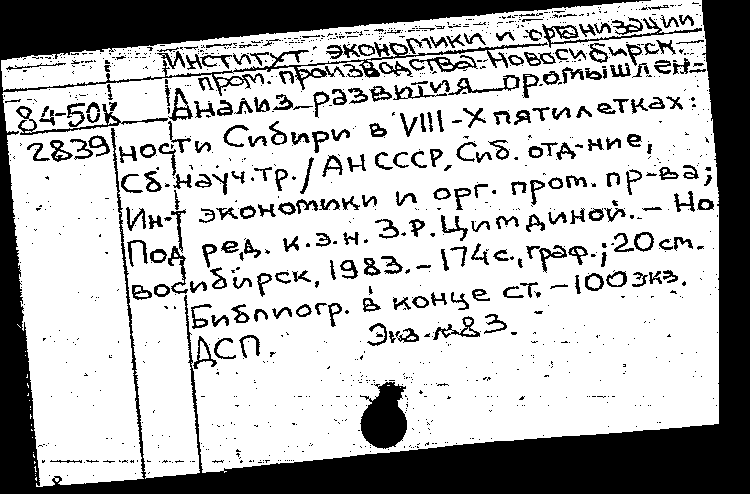 Институт экономики и организации
пром. производства. Новосибирск.
84-50К Анализ развития промышлен-
2839 ности Сибири в VIII-X пятилетках:
Сб. науч. тр. / АН СССР, Сиб. отд-ние,
Ин-т экономики и орг. пром. пр-ва;
Под ред. к.э.н. З.Р. Цимдиной. – Но
восибирск, 1983. – 174 с., граф.; 20 см.
Библиогр. в конце ст. – 100 экз.
ДСП. Экз. №83.